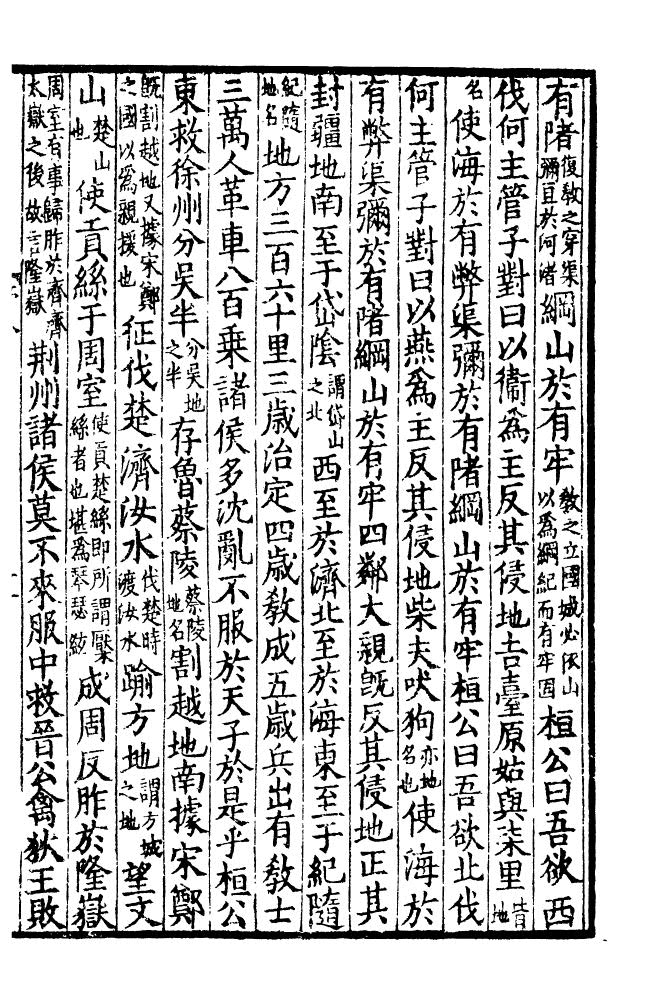 有陼復敎之穿渠彌亘於河陼綱山於有牢敎之立國城必依山以爲綱紀而有牢固桓公曰吾欲西
伐何主管子對曰以衞爲主反其侵地吉臺原姑與柒里皆地
名使海於有弊渠彌於有陼綱山於有牢桓公曰吾欲北伐
何主管子對曰以燕爲主反其侵地柴夫吠狗亦地名也使海於
有弊渠彌於有陼綱山於有牢四鄰大親旣反其侵地正其
封疆地南至于岱陰謂岱山之北西至於濟北至於海東至于紀隨
紀隨地名地方三百六十里三歲治定四歲敎成五歲兵出有敎士
三萬人革車八百乘諸侯多沈亂不服於天子於是乎桓公
東救徐州分吳半分吳地之半存魯蔡陵蔡陵地名割越地南據宋鄭
旣割越地又據宋鄭之國以爲親援也征伐楚濟汝水伐楚時渡汝水踰方地謂方城之地望文
山楚山也使貢絲于周室使貢楚絲卽所謂檿絲者也堪爲琴瑟絃成周反胙於隆嶽
周室有事歸胙於齊齊太嶽之後故言隆嶽荆州諸侯莫不來服中救晉公禽狄王敗